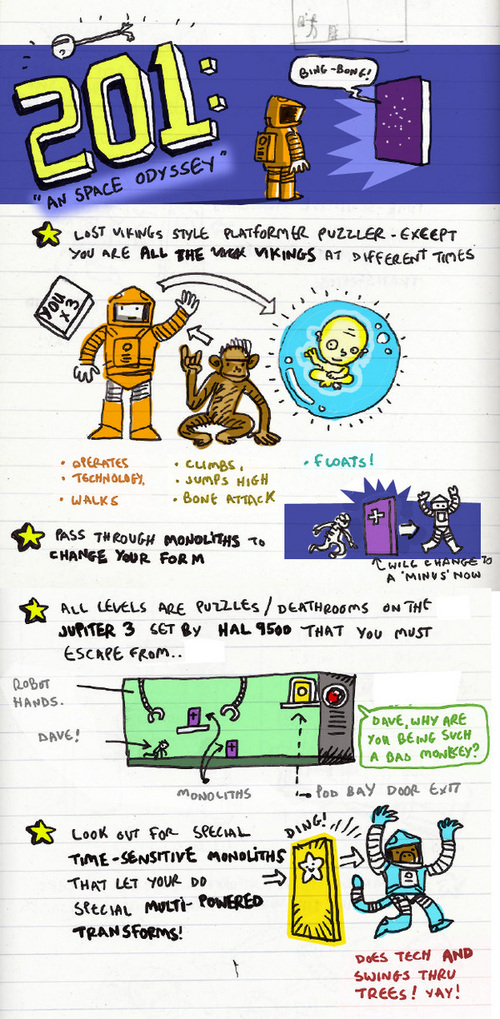 201:
"AN SPACE ODYSSEY"
BING-BONG!
LOST VIKINGS STYLE PLATFORMER PUZZLER - EXCEPT
YOU ARE ALL THE VIKINGS AT DIFFERENT TIMES
YOU
x 3
• OPERATES
• TECHNOLOGY,
• WALKS
• CLIMBS,
• JUMPS HIGH
• BONE ATTACK
• FLOATS!
PASS THROUGH MONOLITHS TO
CHANGE YOUR FORM
+
↑ WILL CHANGE TO
A 'MINUS' NOW
ALL LEVELS ARE PUZZLES / DEATHROOMS ON THE
JUPITER 3 SET BY HAL 9500 THAT YOU MUST
ESCAPE FROM..
ROBOT
HANDS.
DAVE!
MONOLITHS
POD BAY DOOR EXIT
DAVE, WHY ARE
YOU BEING SUCH
A BAD MONKEY?
LOOK OUT FOR SPECIAL
TIME-SENSITIVE MONOLITHS
THAT LET YOUR DO
SPECIAL MULTI-POWERED
TRANSFORMS!
DING!
DOES TECH AND
SWINGS THRU
TREES! YAY!